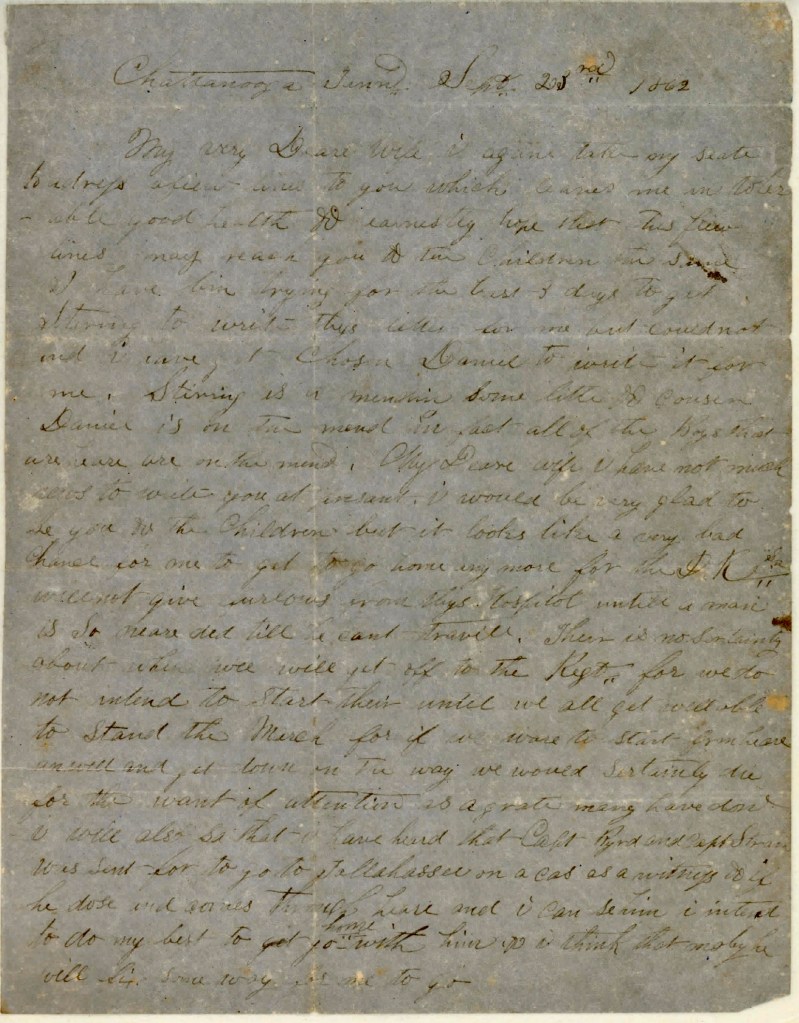 Chattanooga Tenn. Sept. 23rd 1862
My very Deare Wife i again take my seate
to adress afiew lines to you which leaves me in toler
-able good health & earnestly hope that this fiew
lines may reach you & the Children the same
I have bin trying for the last 8 days to get
Stirring to write this letter for me but could not
and i have got Chosen Daniel to write it for
me. Stirring is a mendin Some little & cousen
Daniel is on the mend in fact all of the Boys that
are heare are on the mend. My Deare wife i have not much
news to write you at presant. i would be very glad to
se you & the Children but it looks like a very bad
chance for me to get to go home any more for the
will not give furlows from this Hospitol untill a man
is So neare ded till he cant travill. Their is no Sertainty
about when wee will get off to the Regt. for we do
not intend to Start their until we all get well able
to Stand the March for if we ware to start from heare
unwell and get down on the way we would sertainly die
for the want of attention as a grate many have don
i will also say that i have heard that Capt Byrd and Capt
was sent for to go to Tallahassee on a cas as a witness & if
he dose and comes through heare and i can se him i intend
to do my best to get go home with him & i think that mayby he
will fix some way for me to go